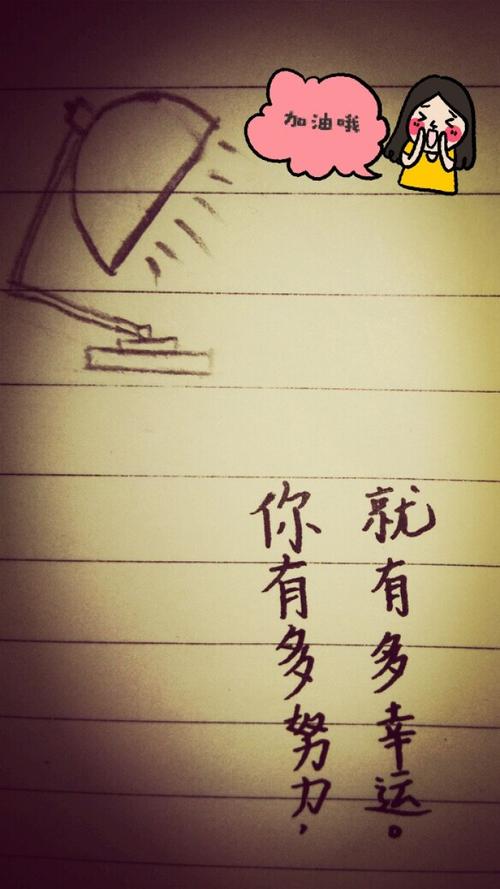 加油哦
你有多努力，
就有多幸运。